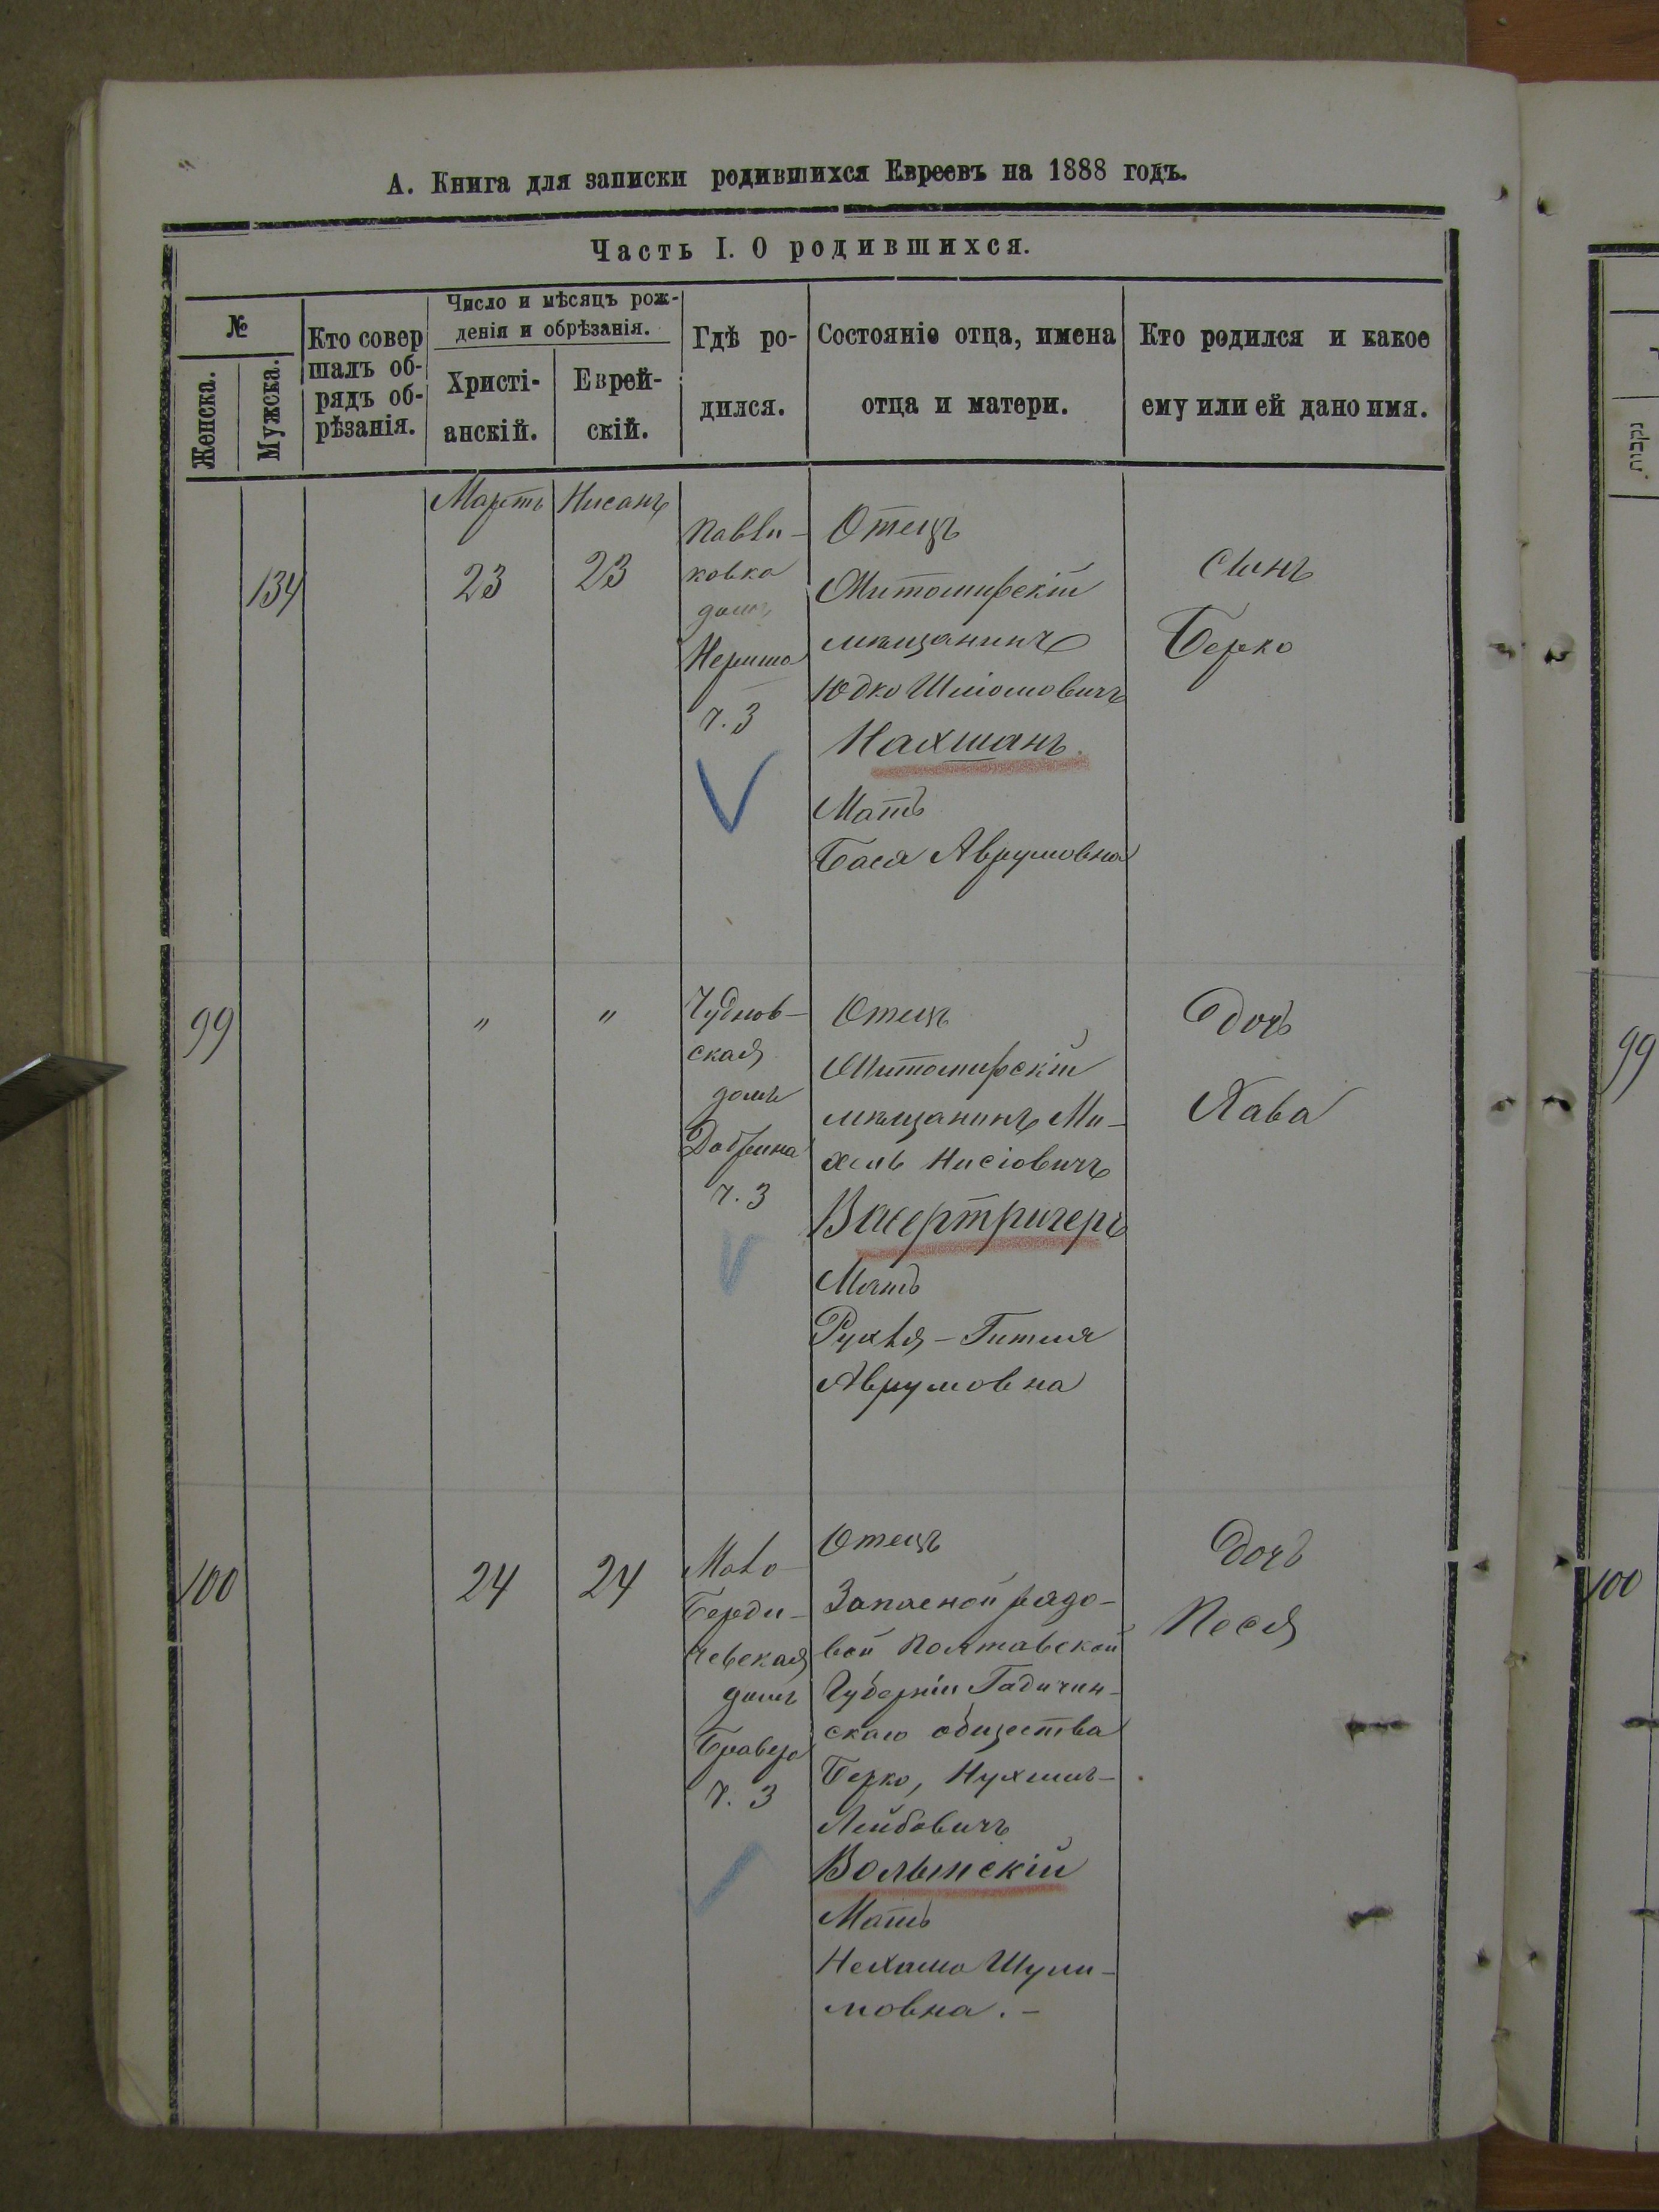 А. Книга для записки родившихся Евреевъ на 1888 годъ.
Часть I. О родившихся.
№
Женска.
Мужска.
Кто совер
шалъ об-
рядъ об-
рѣзанія.
Число и мѣсяцъ рож-
денія и обрѣзанія.
Христі-
анскій.
Еврей-
скій.
Гдѣ ро-
дился.
Состояніе отца, имена
отца и матери.
Кто родился и какое
ему или ей дано имя.
134
Мартъ
23
Нисанъ
23
Павли-
ковка
домъ
ч. 3
Отецъ
Житомирскій
мѣщанинъ
Юдко Шліомовичъ
Нахманъ.
Мать
Бася Аврумовна
Сынъ
Берко
99
"
"
Чуднов-
ская
домъ
Добрина
ч. 3
Отецъ
Житомирскій
мѣщанинъ Ми-
хель Нисіовичъ
Васертригеръ
Мать
Рухля-Гитля
Аврумовна
дочь
Хава
100
24
24
Мало
Берди-
чевская
домъ
Бравера
ч. 3
Отецъ
Запасной рядо-
вой Полтавской
Губерніи Гадичин-
скаго общества
Берко, Нухимъ-
Лейбовичъ
Волынскій
Мать
Нехама Шули-
мовна.-
дочь
Песя
נקבות
99
100